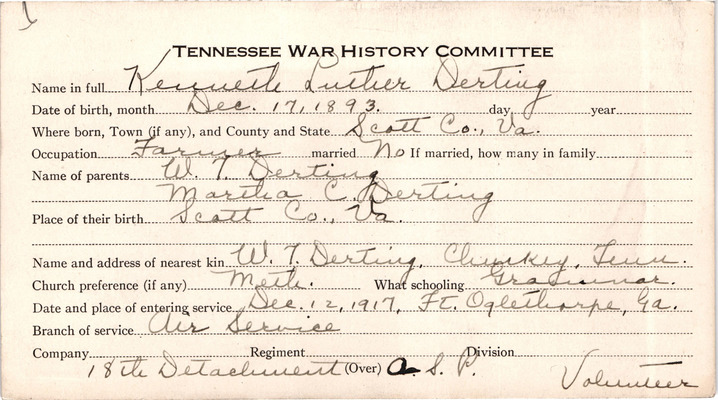 TENNESSEE WAR HISTORY COMMITTEE
Name in full Kenneth Luther Derting
Date of birth, month Dec. 17, 1893. day year
Where born, Town (if any), and County and State Scott Co., Va.
Occupation Farmer married No If married, how many in family
Name of parents W. T. Derting
Martha C. Derting
Place of their birth Scott Co., Va.
Name and address of nearest kin W. T. Derting, Chunkey, Tenn.
Church preference (if any) Meth. What schooling Grammar.
Date and place of entering service Dec. 12, 1917, Ft. Oglethorpe, Ga.
Branch of service Air Service
Company Regiment Division
18th Detachment (Over) A. S. P.
Volunteer